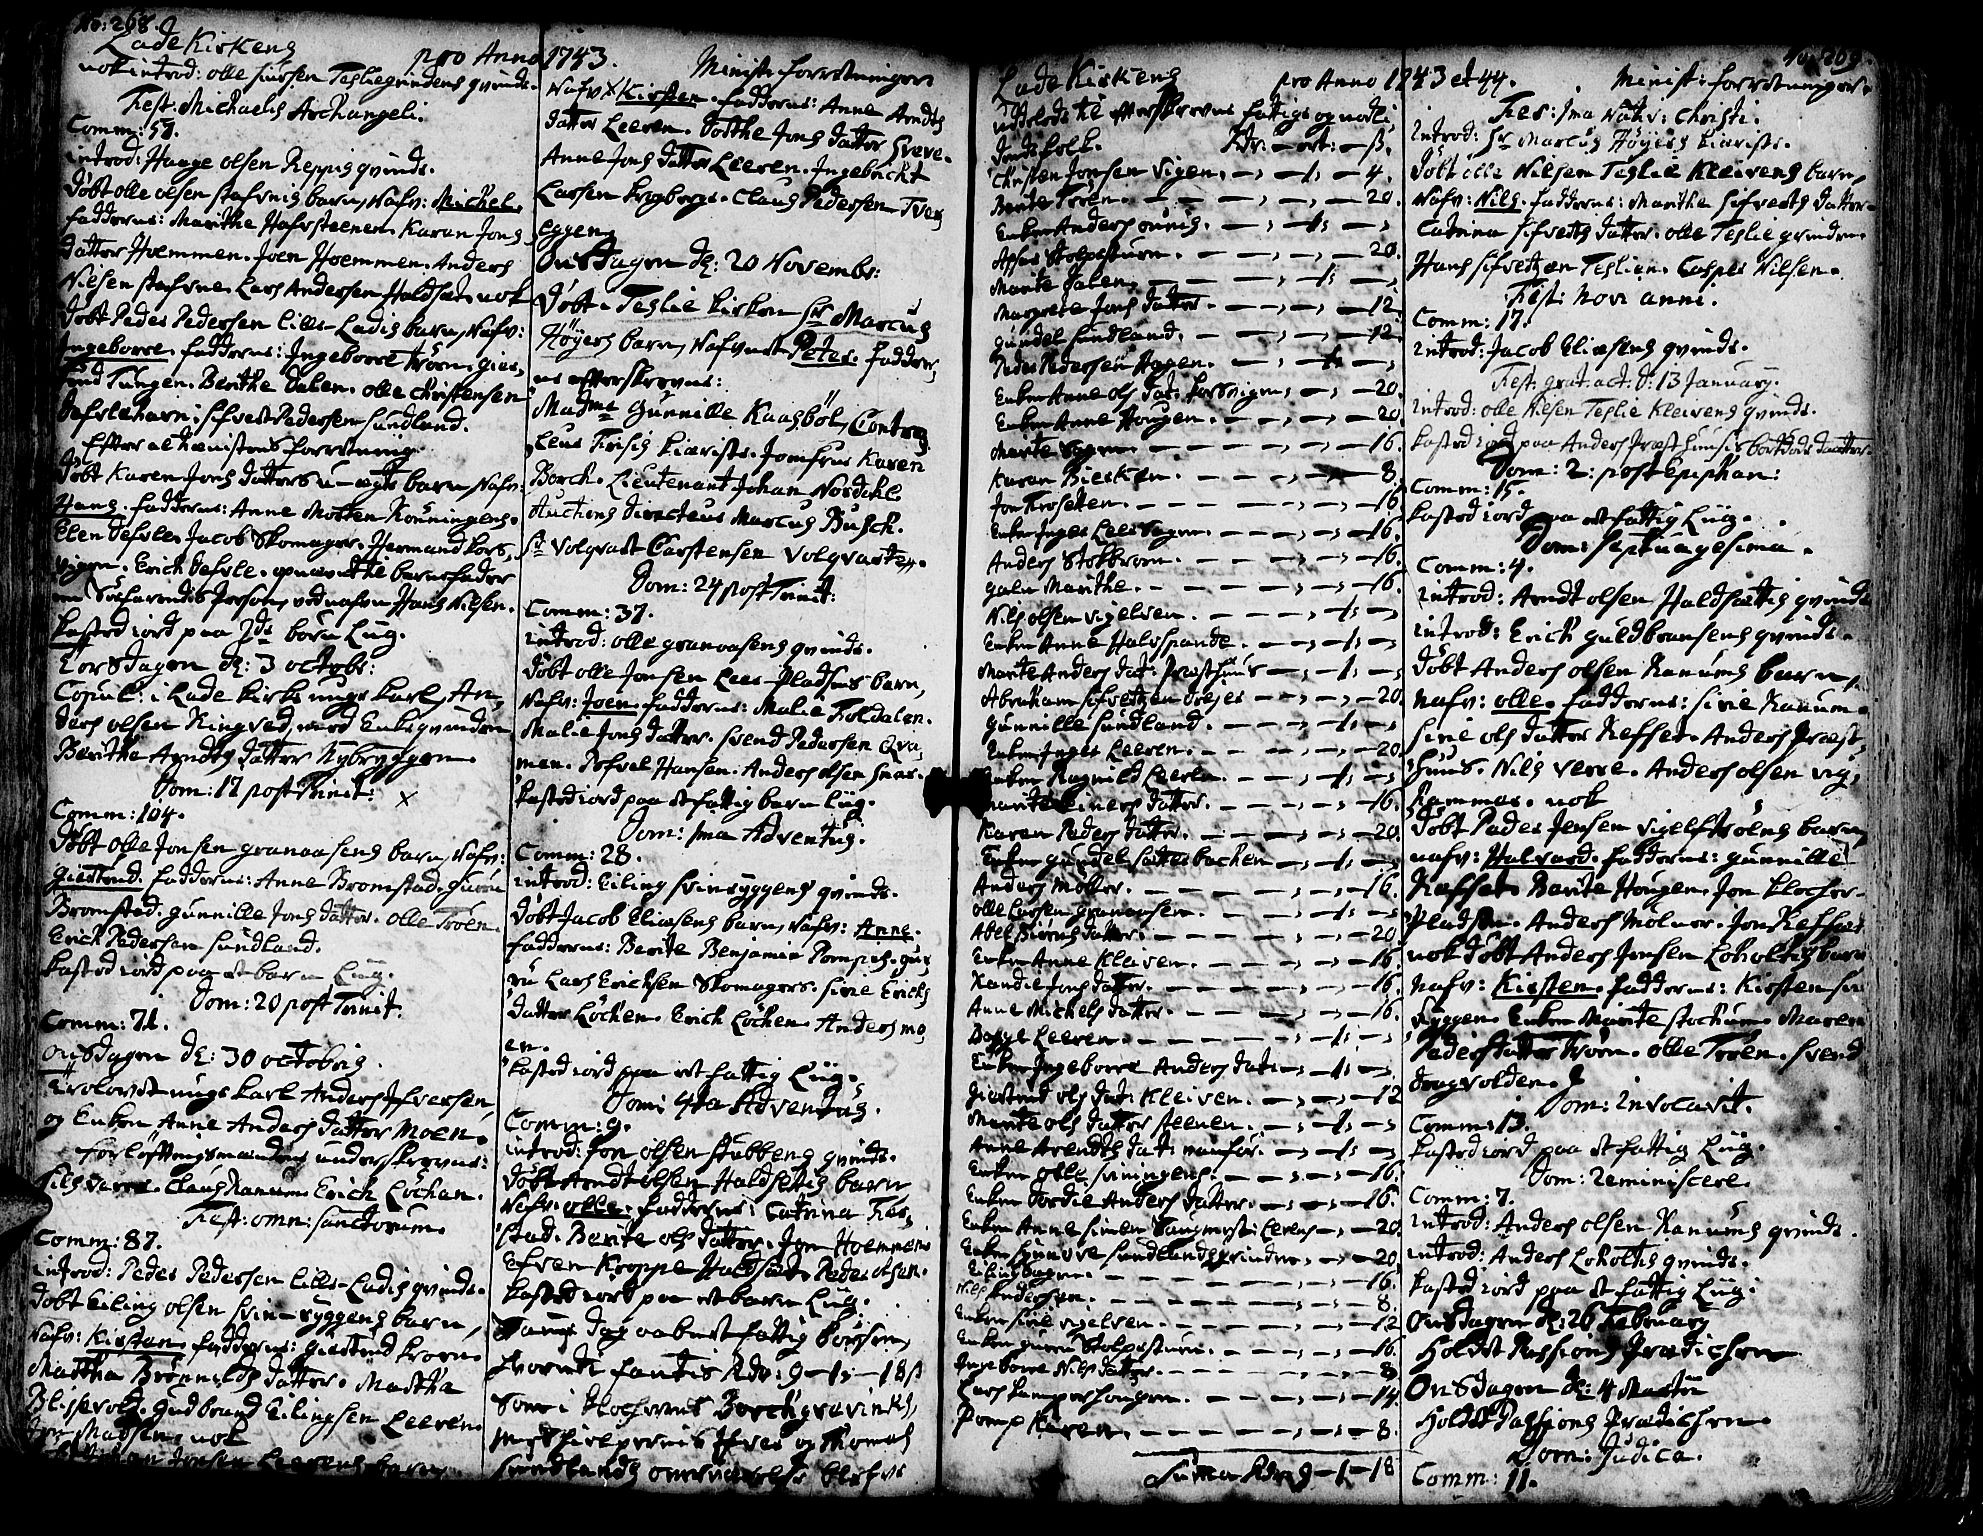 No: 268.
Lade Kirkens pro Anno 1743. Minist: forretninger
nok introd: olle
Fest: Michaelis Archangeli.
Comm: 51.
introd: Haage olsen Reppis qvinde.
Döbt olle olsen stafnis barn, Nafn: Michel.
fadderne: Marithe Hafrsteenen. Karen Jons
datter Hoemmen. Joen Hoemmen. Anders
Nielsen stafne. Lars Andersen Haldset. nok
Döbt Peder Pedersen Lille-Ladis barn, Nafn:
Ingeborre. fadderne: Ingeborre Kroen. gier,
trud Tungen. Berithe Dalen. olle Christensen
Defvlehavn. sifvert Pedersen sundland.
Efter alteristens forretning
Döbt Karen Jons datters u-ægte barn, Nafn:
Hans. fadderne: Anne Morten Könningens.
Elen Defvle. Jacob Skomager. Hermand Kors,
vigen. Erich Defvle.
Hans Nilsen.
kasted iord paa 2de börn Liig.
Torsdagen d: 3 octobr:
Copul: i Lade Kirke unge karl, An,
ders olsen Ringved, med Enkeqvinden
Berithe Arndts datter Nybryggen.
Dom: 17 post Trinit: x
Comm: 104.
Döbt olle Jonsen granaasens barn, Nafn:
giertrud. fadderne: Anne Bromstad. guru
Bromsted. gunnille Jons datter. olle Troen.
Erick Pedersen sundland.
kasted iord paa et barn Liig.
Dom: 20 post Trinit.
Comm: 71.
onsdagen d: 30 octobris
Trolovet unge karl Anders Ifversen,
og Enken Anne Anders datter Moen.
forlöftningsmændene underskrevne:
Nils Verre. Claus Ranum. Erick Löchen.
Fest: omn: sanctorum.
Comm: 87.
introd: Peder Pedersen Lille-Ladis qvinde.
Döbt Eiling olsen svin-ryggens barn,
Nafn: Kirsten. fadderne: giertrud kroen
Martha datter. Martha
Blisevold. gudbrand Eilingsen Leeren.
Jon Madsen. nok
Jonsen Leerens barn
Nafn x Kirsten. fadderne: Anne Arndts
datter Leeren. Dorthe Jons datter Greve.
Anne Jons datter Leeren. Ingebricht
Larsen krogborg. Claus Pedersen Tver,
eggen
Onsdagen d: 20 Novembr:
Döbt i Teslie kirken Sr Marcus
Höyers barn, Nafnet Peter. fadder,
ne efterskrevne:
Madme Gunnille Kaasböl, Contro,
leur Frisis kiæriste. Jomfrue Karen
Borch. Lieutenant Johan Nordahl.
Auctions Directeur Marcus Busch.
Sr Volqvart Carstensen Volqvartzen.
Dom: 24 post Trinit:
Comm: 37.
introd: olle granaasens qvinde.
Döbt olle Jonsen Leer-Pladsens barn,
Nafn: Joen. fadderne: Malie Toldalen.
Malie Jons datter. svend Pedersen Qva,
men. Hansen. Anders olsen
kasted iord paa et fattig barn Liig.
Dom: 1ma Adventus.
Comm: 28.
introd: Eiling svinryggens qvinde.
Döbt Jacob Eliæsens barn, Nafn: Anne.
fadderne: Berite Benjamin Pompis. gu,
ru Lars Ericksen Skomagers. sirie Ericks
datter Löchen. Erick Löchen. Anders mo,
en.
kasted iord paa et fattig Liig.
Dom: 4ta Adventus.
Comm: 9.
introd: Jon olsen stubbens qvinde.
Döbt Arndt olsen Haldsetis barn
Nafn: olle. fadderne: Catrina Fer,
stad. Berite ols datter. Jon Hoemmen
Efven Kroppe Haldset. Peder olsen.
kasted iord paa et barn Liig.
Samme dag aabnet fattig bössen,
hvorudi fantis Rdr: 9-1-18s
som i klocherens Borchgrevinks,
medhielpernis Ifver og Thomas
sundlands overværelse blefve
No: 269.
Lade Kirkens pro Anno 1743 et 44. Minist: forretninger.
uddelede til efterskrevne fattige og nödli,
dende folk. Rdr - ort - s.
Christen Jonsen Vigen. - 1 - 4.
Berite Troen. - 20.
Enken Anders - 1 -
Stolpestuen. - 20.
Marite Dalen. - 1 -
Margrete Jons datter. - 12
gundel sundland. - 12
Peder Pedersen Hagen. - 1 -
Enken Anne ols dat: korsvigen - 20.
Enken Anne Hougen. - 20
Marite - 16.
Karen Bierken. - 8
Jon Kroseten. - 16
Enken Inger - 16.
Anders Stokkroen. - 16.
galn Marithe. - 16.
Nils olsen vigelsen. - 1 -
Enken Anne Halvspande. - 1 -
Marite Anders dat: Præsthuus - 1 -
Abraham sifvertzen - 20
gunnille sundland. - 1 -
Enken Inger Leeren. - 20
Enken Ragnild Leeren - 1 -
Marite Einers datter. - 16.
Karen Peders datter. - 20.
Enken gundel setterbachen - 1 -
Anders Moller. - 16.
olle Larsen granaasen. - 1 -
Abel Biörns datter. - 20
Enken Anne Klaven. - 16
Randie Jons datter. - 16.
Anne Michels datter. - 16.
Leeren. - 1 -
Enken Ingeborre Anders dat: - 1 -
giertrud ols dat: Kleiven. - 12
Marite ols datter steenen. - 1 -
Anne Arendts dat: - 1 -
Enken olle - 16.
Enken Dordie Anders datter. - 16.
Enken Anne - 20
Enken sundlandsgrinden - 20
- 16.
Nils Andersen. - 8.
Enken sirie vigelsen. - 12
Enken guru Stolpestuen. - 16.
Ingeborre Nils datter. - 8
Lars - 14
Pomp Karen. - 8.
Suma Rdr 9-1-18
Fes: 1ma Nativ: Christi.
introd: Sr Marcus Höyers kiæriste.
Döbt olle Nilsen Teslie Kleivens barn,
Nafn: Nils. fadderne: Marithe sifverts datter
Catrina sifverts datter. olle Teslie grinden.
Hans sifvertzen Teslien. Casper Nilsen.
Fest: Novi anni.
Comm: 17.
introd: Jacob Eliæsens qvinde.
Fest: grat: act: d: 13 January.
introd: olle Nilsen Teslie Kleivens qvinde.
kasted iord paa Anders Præsthuusis datter.
Dom: 2: post Epiphan:
Comm: 15.
kasted iord paa et fattig Liig.
Dom: septuagesima.
Comm: 4.
introd: Arndt olsen Haldsætis qvinde
introd: Erick guldbransens qvinde.
Döbt Anders olsen Ranums barn,
nafn: olle. fadderne: sirie Ranum.
sirie ols datter Reffset. Anders Præst,
huus. Nils verre. Anders olsen vig,
Rammer. nok
Döbt Peder Jensen barn
nafn: Halvard. fadderne: gunnille
Reffset. Berite Hougen. Jon klocher-
Pladsen. Anders Molner. Jon Reffset
nok Döbt Anders Jensen Loholtis barn
nafn: Kirsten. fadderne: Kirsten svi
ryggen. Enken Marite Maren
Peders datter kroen. olle Troen. svend
dragvolden.
Dom: Invocavit.
Comm: 13.
kasted iord paa et fattig Liig.
Dom: Reminiscere.
Comm: 7.
introd: Anders olsen Ranums qvinde.
introd: Anders Loholtis qvinde.
kasted iord paa et fattig Liig.
onsdagen d: 26 February
Holdt Passions Prædichen
Onsdagen d: 4 Martii
Holdt Passions Prædichen
Dom: Judica.
Comm: 11.